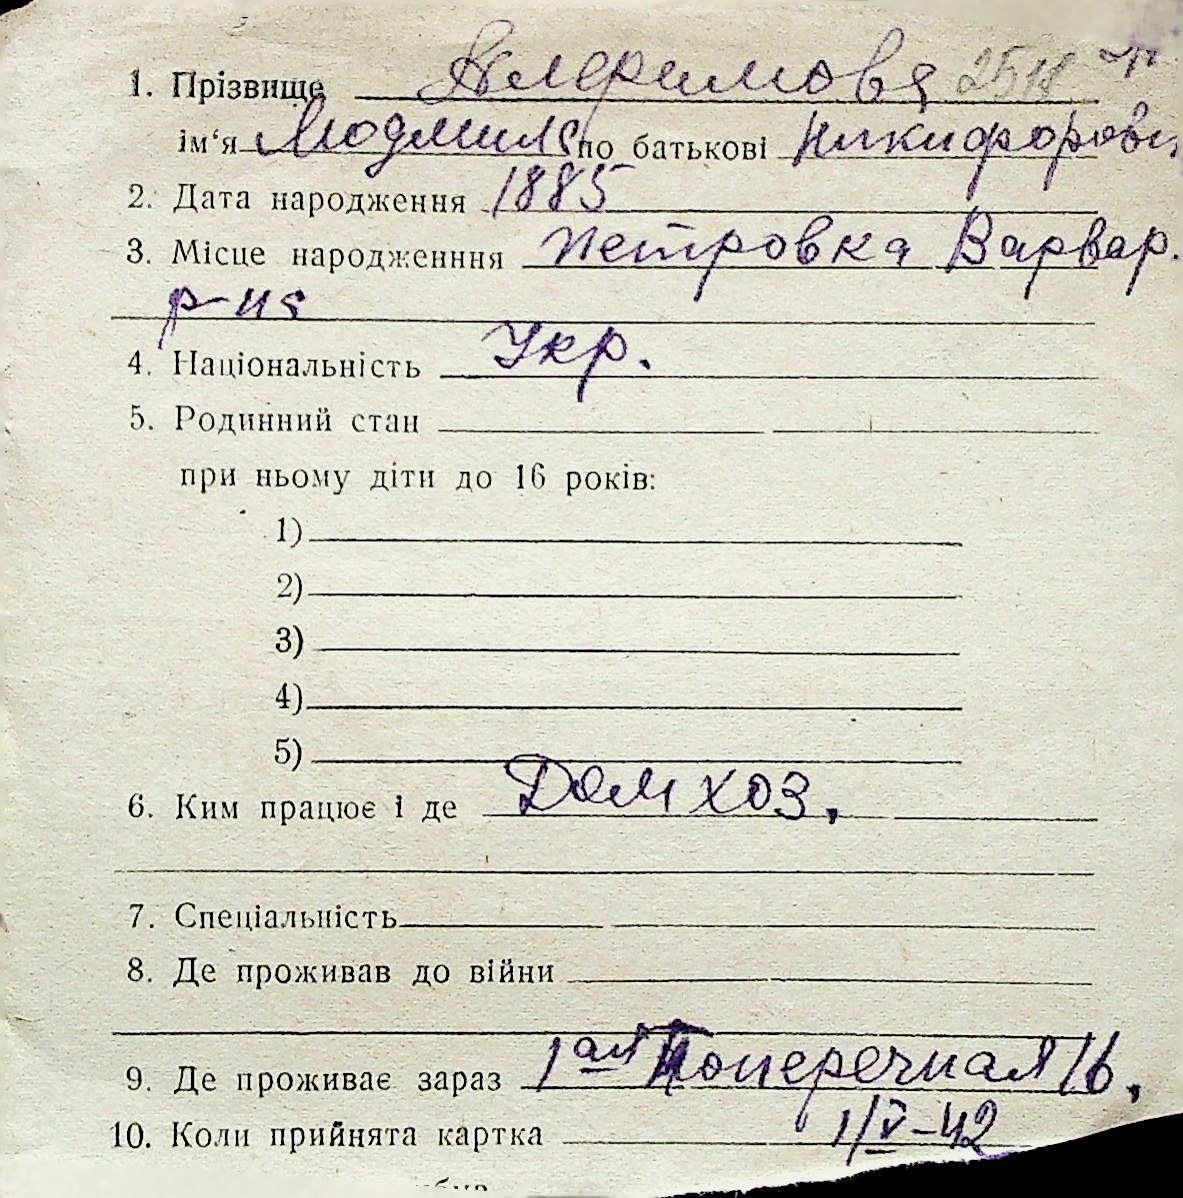 1. Прізвище Алфимова 25118
ім‘я Людмила по батькові Никифоровн
2. Дата народження 1885
3. Місце народженння Петровка Варвар.
р-на
4. Національність Укр.
5. Родинний стан
при ньому діти до 16 років:
1)
2)
3)
4)
5)
6. Ким працює і де Дом хоз.
7. Спеціальність
8. Де проживав до війни
9. Де проживає зараз 1ая Поперечная 16.
10. Коли прийнята картка 1/V-42